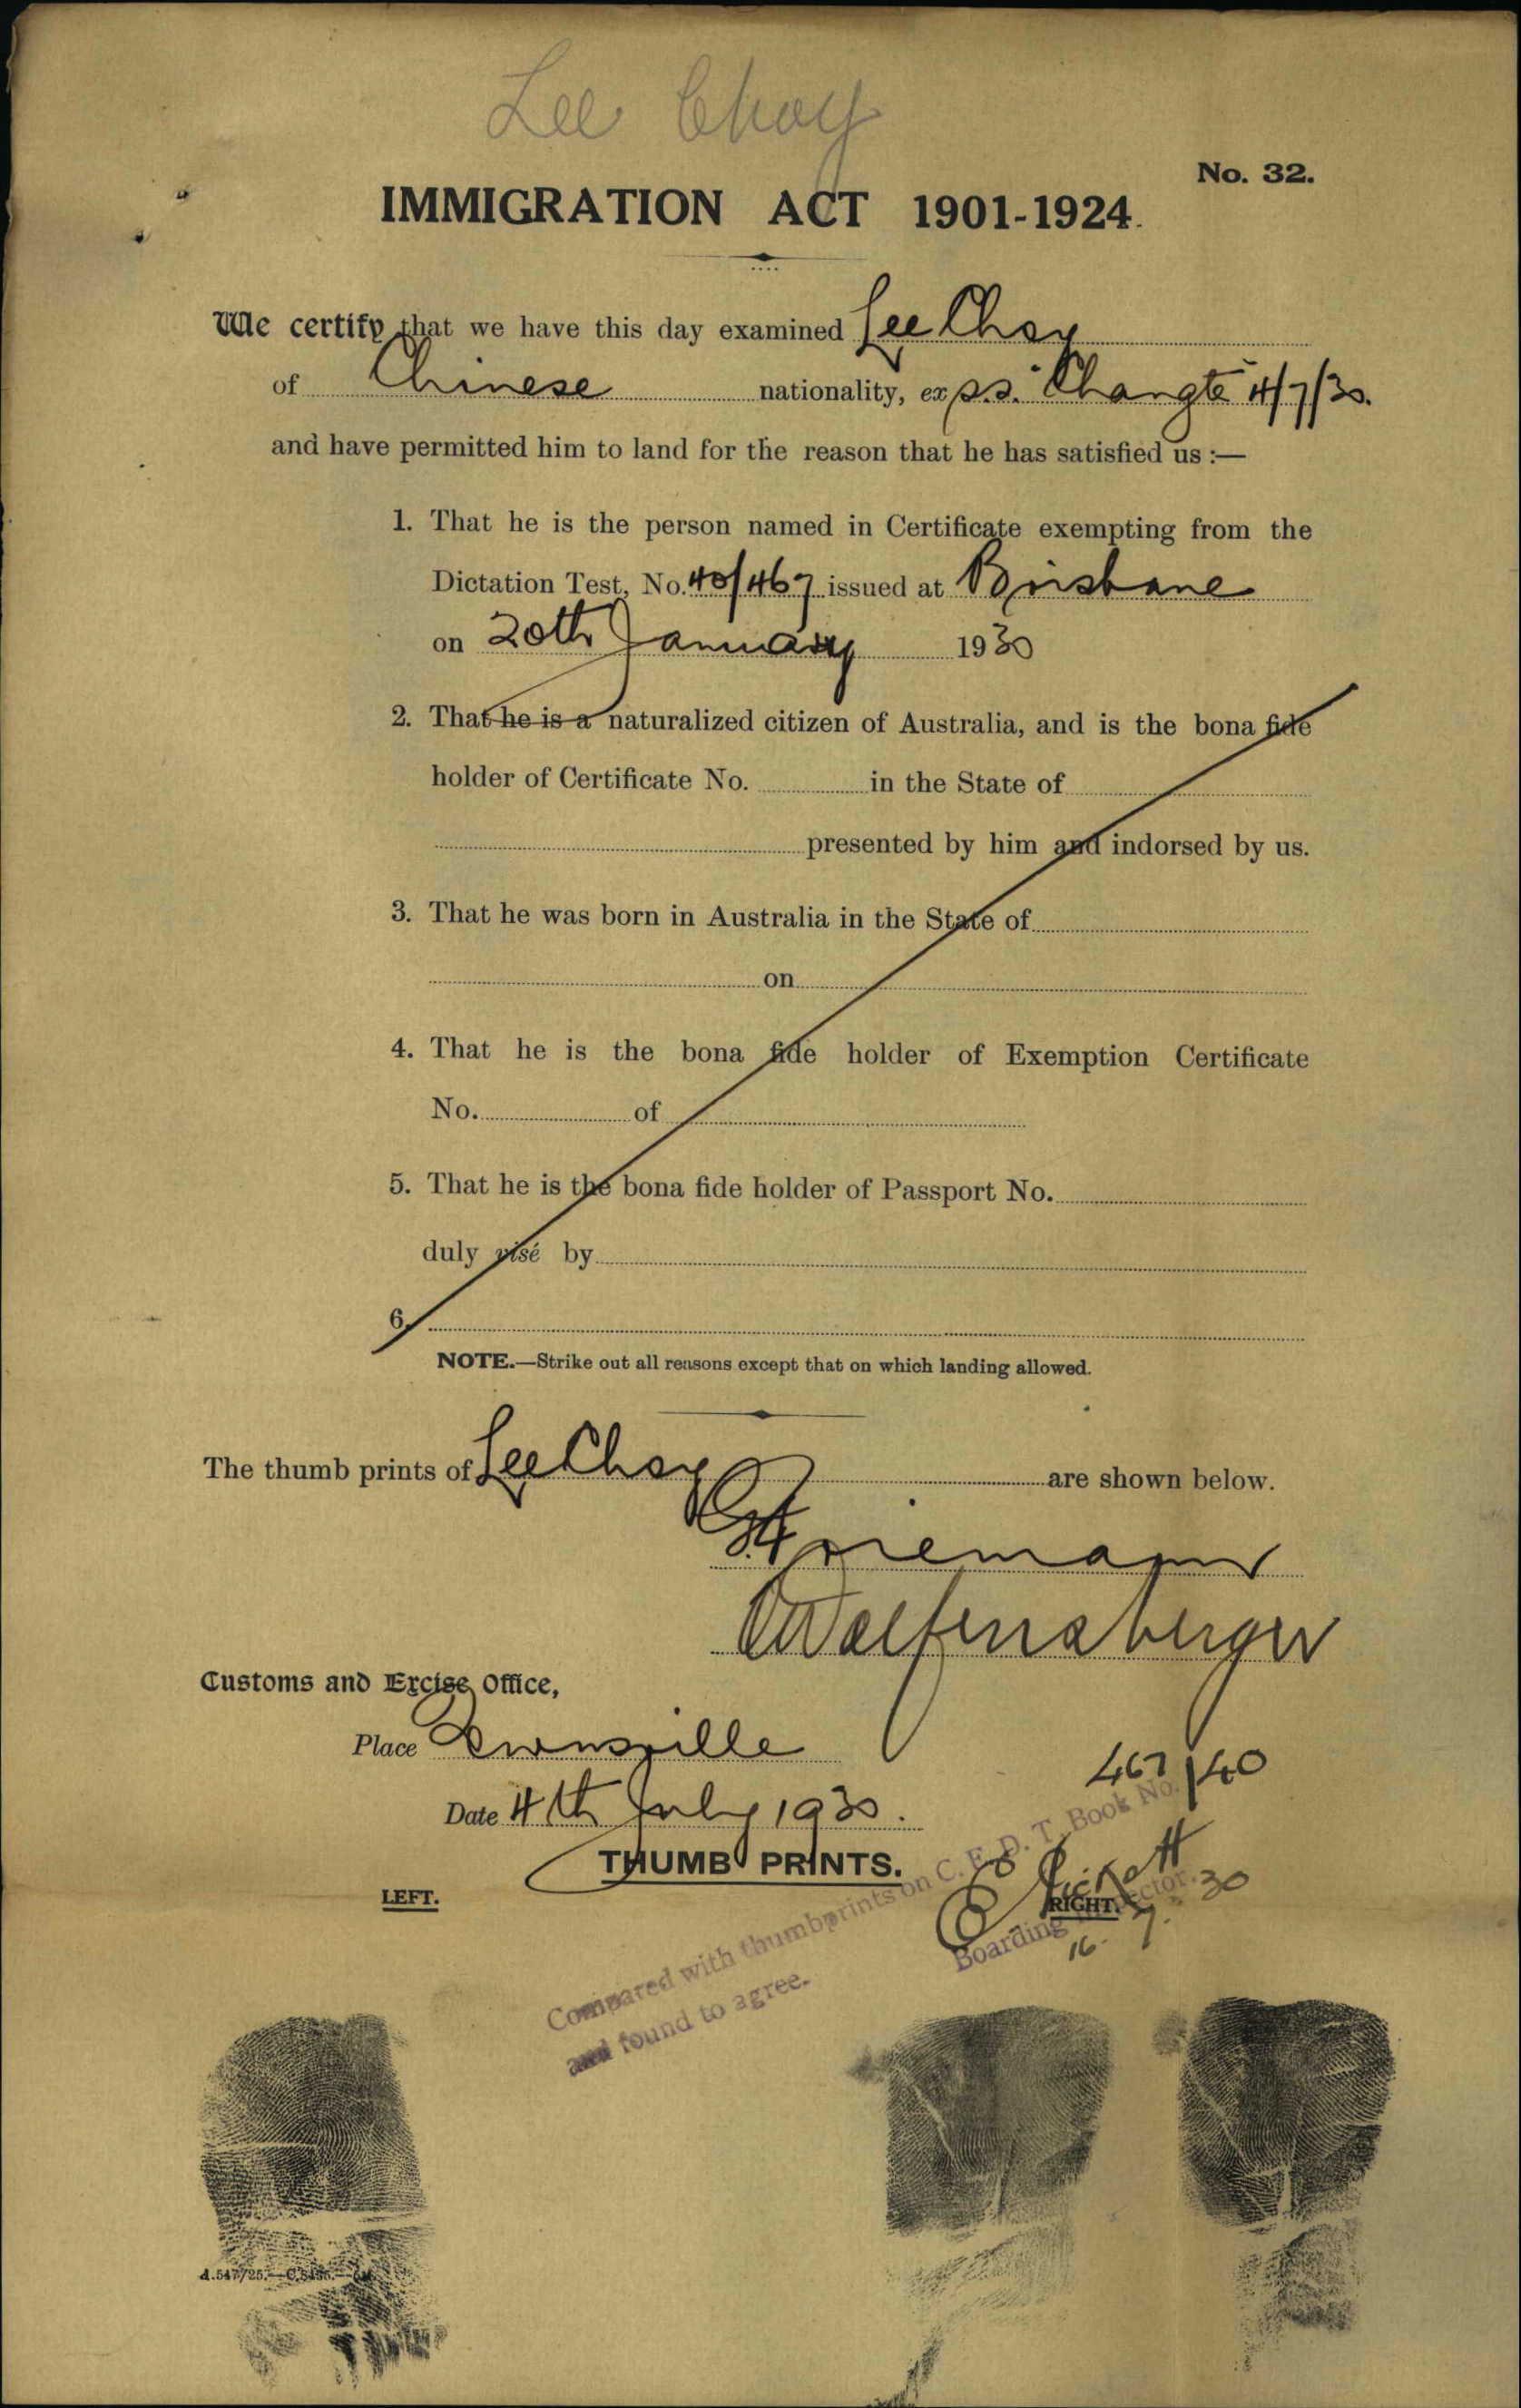 Lee Choy
No. 32.
IMMIGRATION ACT 1901-1924.
We certify that we have this day examined Lee Choy
of Chinese nationality, ex s.s. "Changte" 4/7/30.
and have permitted him to land for the reason that he has satisfied us :—
1. That he is the person named in Certificate exempting from the
Dictation Test, No. 40/467 issued at Brisbane
on 20th January 1930
2. That he is a naturalized citizen of Australia, and is the bona fide
holder of Certificate No. in the State of
presented by him and indorsed by us.
3. That he was born in Australia in the State of
on
4. That he is the bona fide holder of Exemption Certificate
No. of
5. That he is the bona fide holder of Passport No.
duly visé by
6.
NOTE.—Strike out all reasons except that on which landing allowed.
The thumb prints of Lee Choy are shown below.
Wolfensberger
Customs and Excise Office,
Place Townsville
Date 4th July 1930.
467/40
THUMB PRINTS.
LEFT.
RIGHT.
Compared with thumbprints on C. E. D. T. Book No.
and found to agree.
Boarding Inspector.
16. 7. 30
A.547/25.